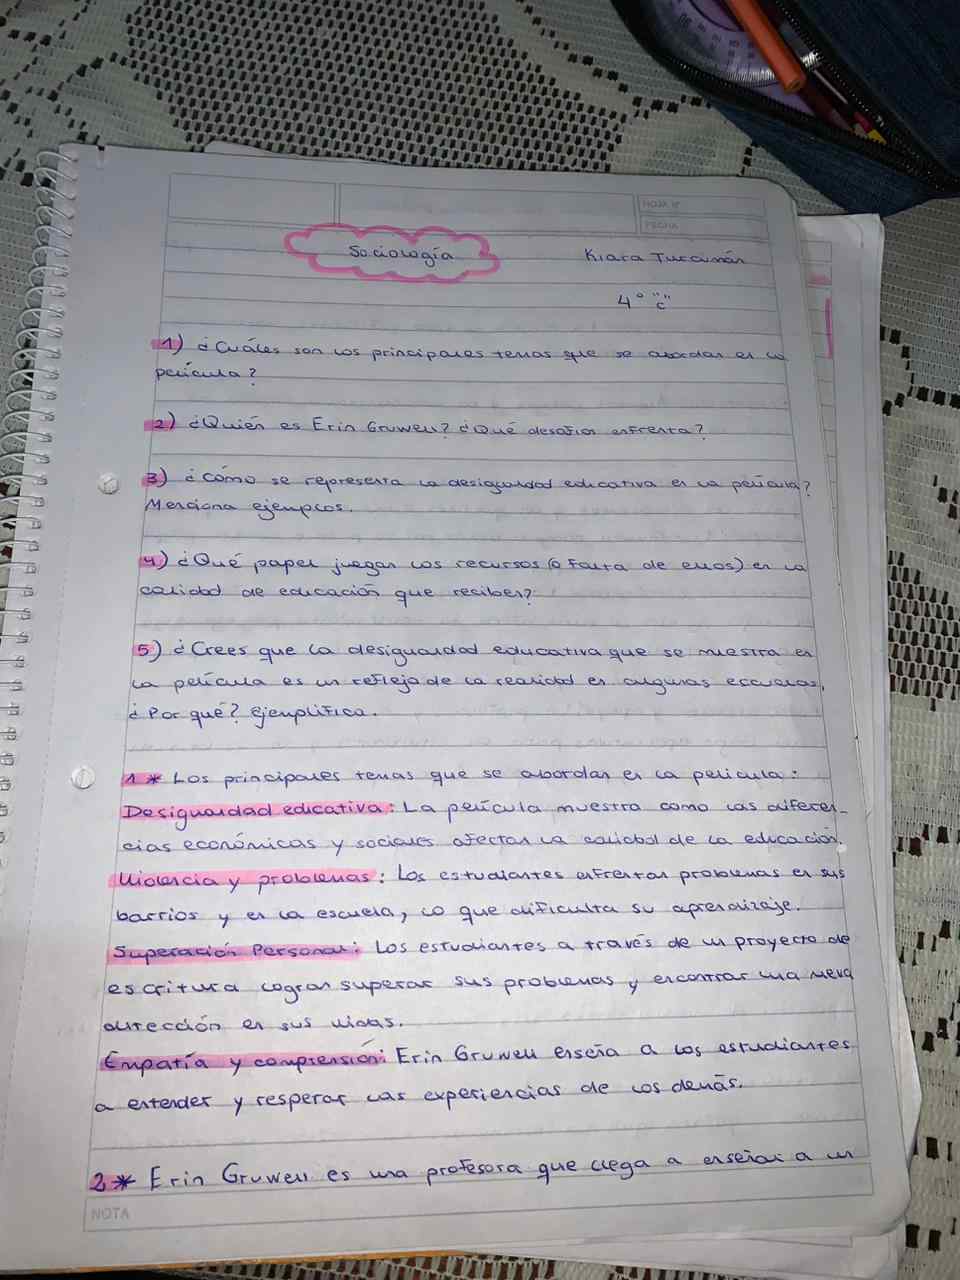 HOJA Nº
FECHA
Sociología
Kiara Tucumán
4° "c"
1) ¿Cuáles son los principales temas que se abordan en la
película?
2) ¿Quién es Erin Gruwell? ¿Qué desafíos enfrenta?
3) ¿Cómo se representa la desigualdad educativa en la película?
Menciona ejemplos.
4) ¿Qué papel juegan los recursos (o falta de ellos) en la
calidad de educación que reciben?
5) ¿Crees que la desigualdad educativa que se muestra en
la película es un reflejo de la realidad en algunas escuelas,
¿Por qué? Ejemplifica.
1* Los principales temas que se abordan en la película:
Desigualdad educativa: La película muestra como las diferen-
cias económicas y sociales afectan la calidad de la educación.
Violencia y problemas: Los estudiantes enfrentan problemas en sus
barrios y en la escuela, lo que dificulta su aprendizaje.
Superación Personal: Los estudiantes a través de un proyecto de
escritura logran superar sus problemas y encontrar una nueva
dirección en sus vidas.
Empatía y comprensión: Erin Gruwell enseña a los estudiantes
a entender y respetar las experiencias de los demás.
2* Erin Gruwell es una profesora que llega a enseñar a un
NOTA